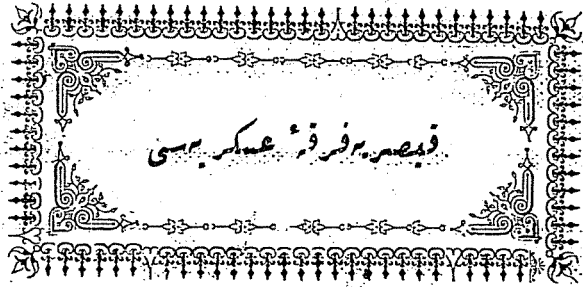 قیصریه فرقهٔ عسکریه سی